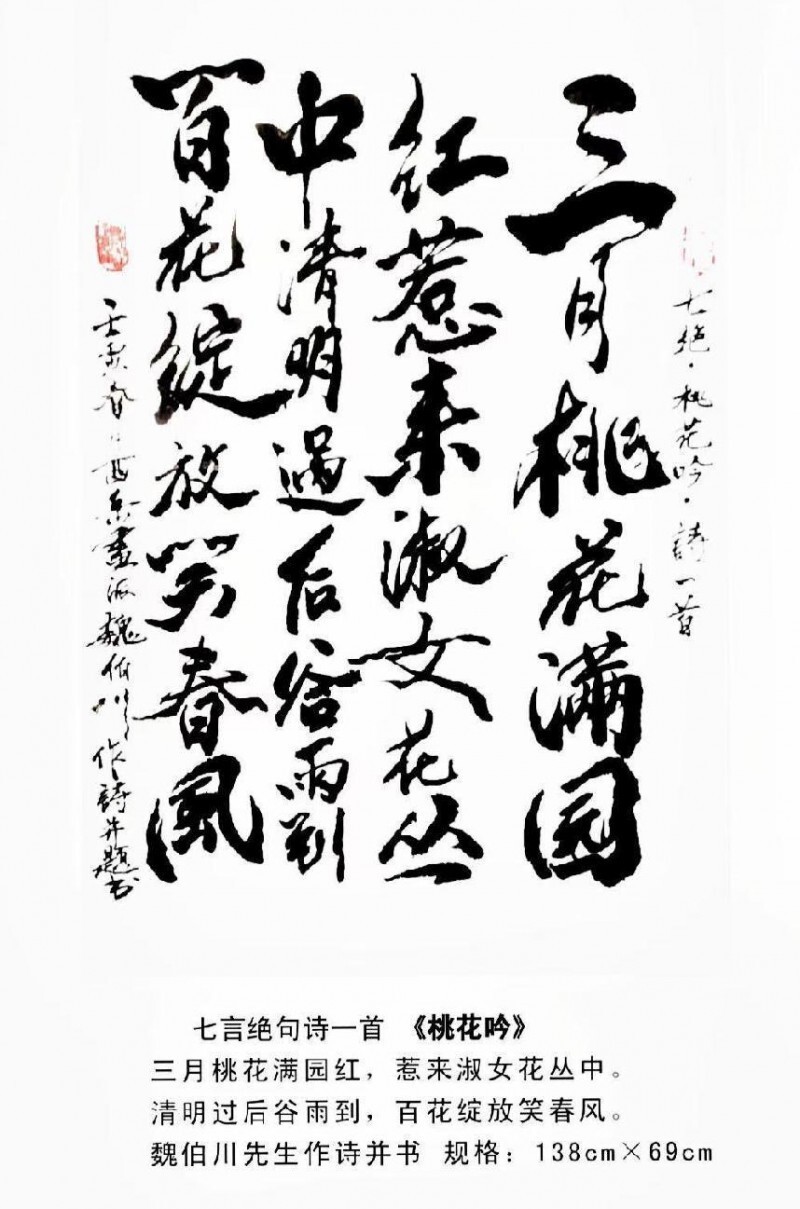 七绝·桃花吟·詩一首
三月桃花满园
红惹来淑女花丛
中清明過后谷雨到
百花绽放笑春風
壬寅春西岳畫派魏伯川作詩并題书
七言绝句诗一首 《桃花吟》
三月桃花满园红，惹来淑女花丛中。
清明过后谷雨到，百花绽放笑春风。
魏伯川先生作诗并书 规格：138cm×69cm